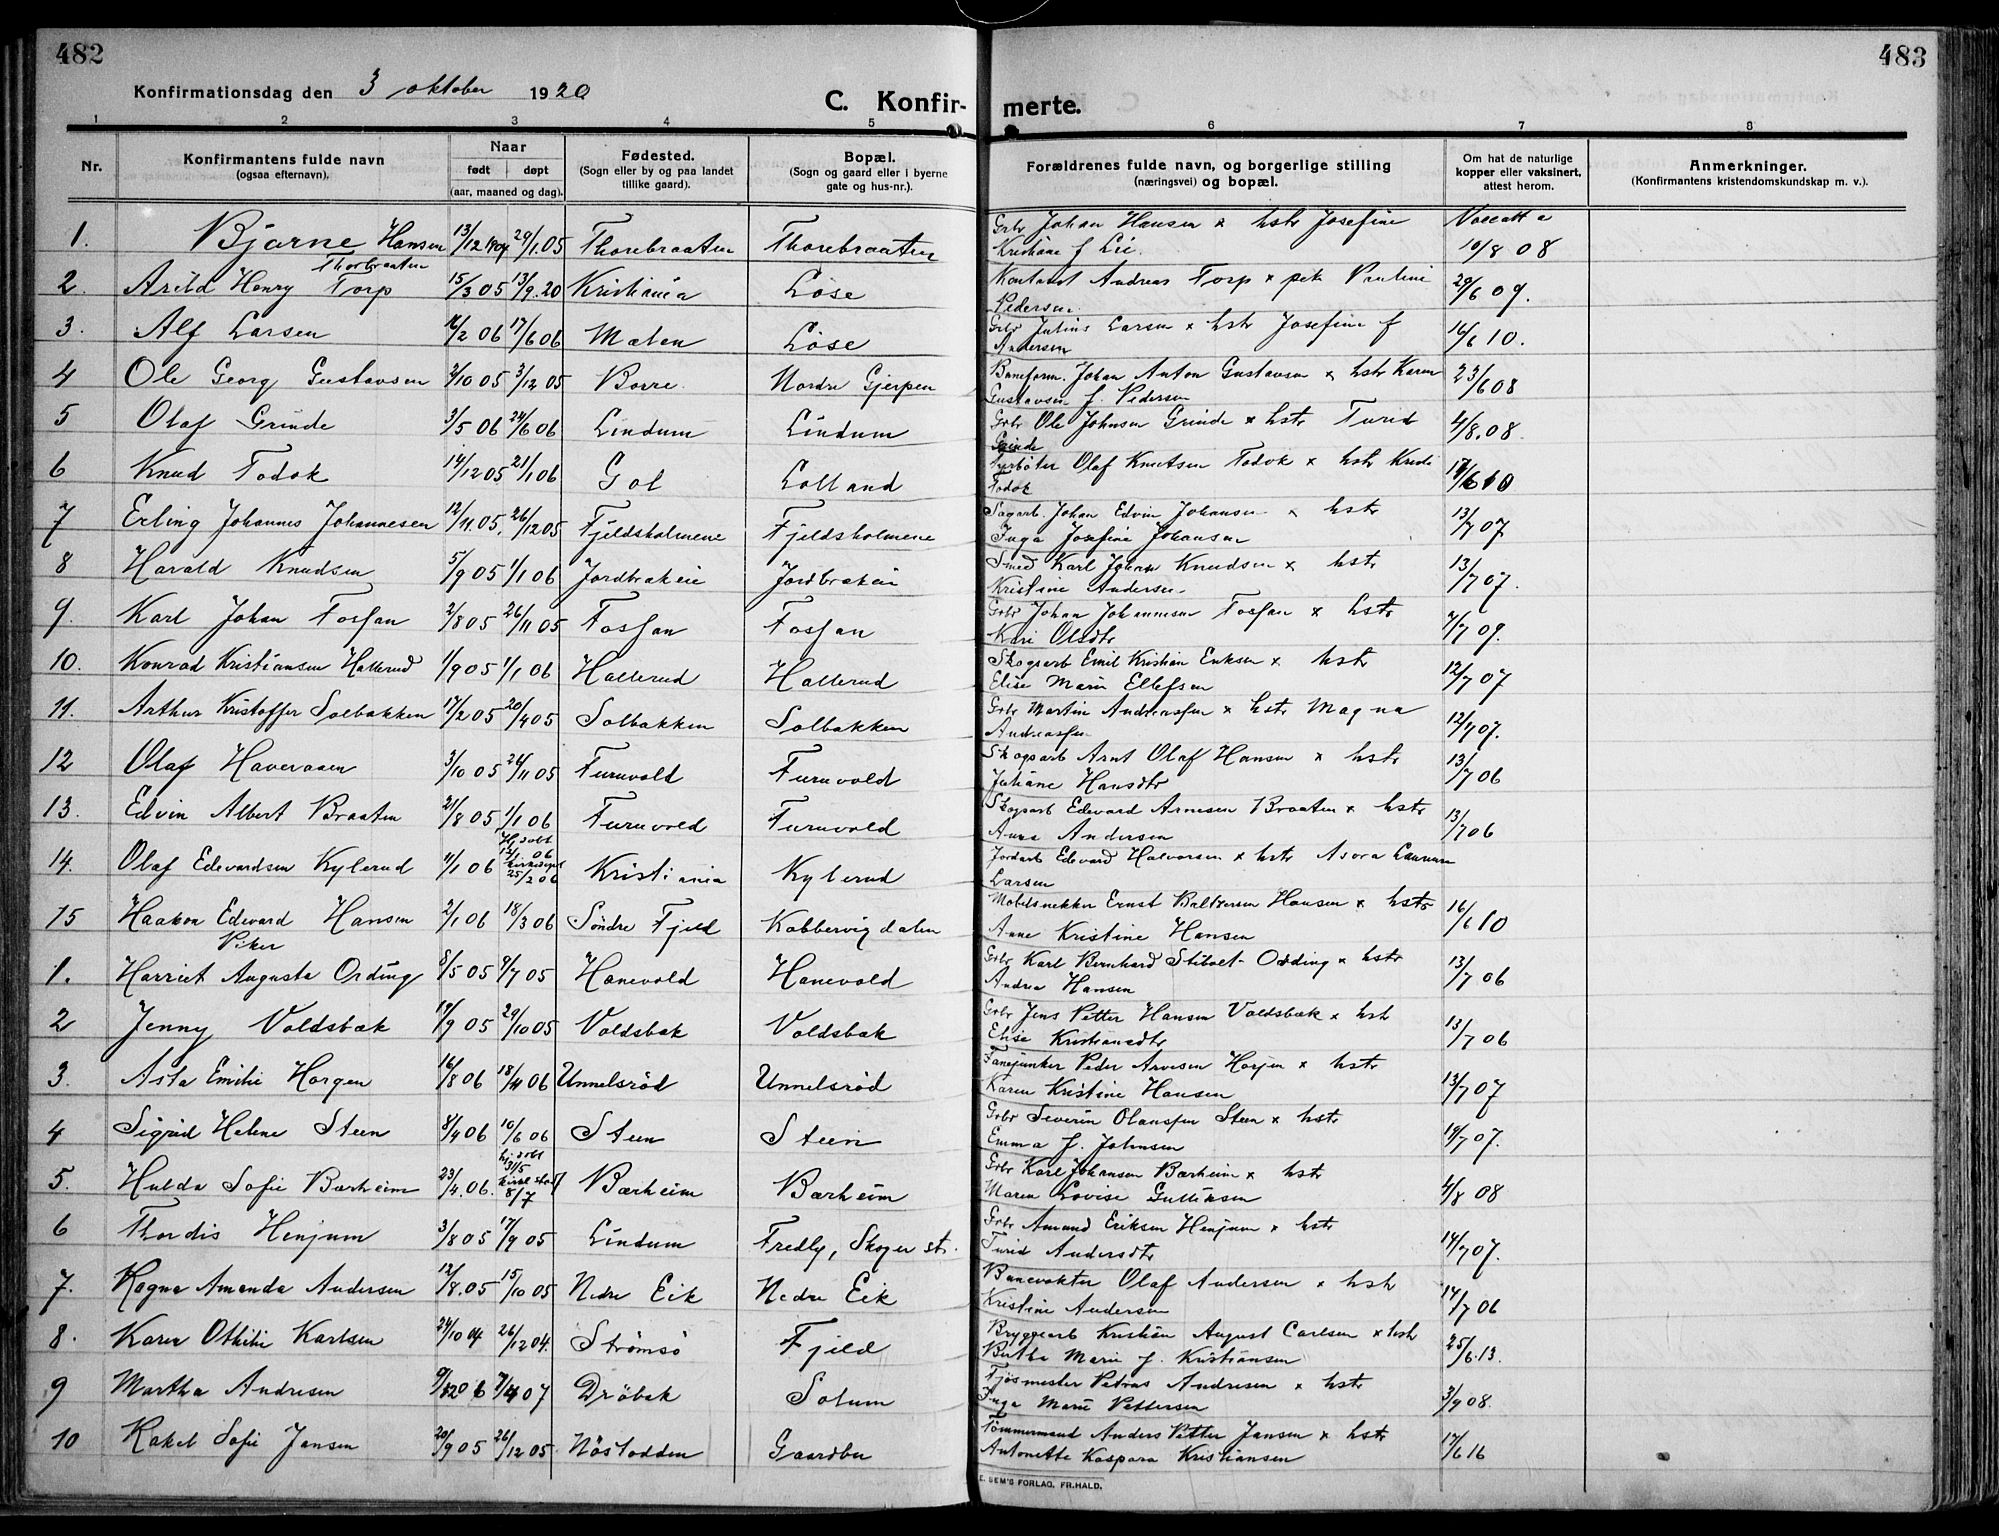 482
483
Konfirmationsdag den 3 oktober 1920
C. Konfir-merte.
1 2 3 4 5 6 7 8
Nr.
Konfirmantens fulde navn
(ogsaa efternavn).
Naar
født døpt
(aar, maaned og dag).
Fødested.
(Sogn eller by og paa landet
tillike gaard).
Bopæl.
(Sogn og gaard eller i byerne
gate og hus-nr.).
Forældrenes fulde navn, og borgerlige stilling
(næringsvei) og bopæl.
Om hat de naturlige
kopper eller vaksinert,
attest herom.
Anmerkninger.
(Konfirmantens kristendomskundskap m. v.).
1. Bjarne Hansen 13/12 1904 29/1 05 Thorebraaten Thorebraaten Grbr Johan Hansen x hstr Josefine
Thorbraaten Kristiane f Lie. 10/8 08
2. Arild Henry Torp 15/3 05 13/9. 20 Kristiania Løse Kontorist Andreas Torp x pike Pauline 29/6 09.
Pedersen.
3. Alf Larsen 16/2 06 17/6 06 Løse Grbr Julius Larsen x hstr Josefine f 16/6 10.
Andersen
4 Ole Georg Gustavsen 2/10 05 3/12 05 Borre. Nordre Gjerpen Baneform. Johan Anton Gustavsen x hstr Karen 23/6 08
Gustavsen f. Pedersen
5 Olaf Grinde 3/5 06 24/6 06 Lindum Lindum Grbr Ole Johnsen Grinde x hstr Turid 4/8. 08.
Grinde
6 Knud Todok 14/12 05 21/1 06 Gol Lolland Olaf Knutsen Todok x hstr
Todok
7 Erling Johannes Johannesen 12/11. 05. 26/12 05 Fjeldsholmene Fjeldsholmene Sagarb. Johan Edvin Johansen x hstr 13/7 07
Inga Josefine Johansen
8 Harald Knudsen 5/9 05 1/1 06 Jordbrakeie Jordbrakeie Smed Karl Johan Knudsen x hstr 13/7 07.
Kristine Andersen
9. Karl Johan Fosfan 2/8 05 26/11 05 Fosfan Fosfan Grbr Johan Johannesen Fosfan x hstr
Kari Olsdtr
10. Konrad Kristiansen Hallerud 1/9 05 1/1 06 Hallerud Hallerud Skogsarb Emil Kristian Eriksen x hstr 12/7 07
Elise Marie Ellefsen
11. Arthur Kristoffer Solbakken 17/2 05 20/4 05 Solbakken Solbakken Grbr Martin Andreassen x hstr Magna 12/7 07.
Andreassen
12 Olaf Haveraaen 3/10 05 Furuvold Furuvold Skogsarb Arnt Olaf Hansen x hstr 13/7 06
Juliane Hansdtr
13. Edvin Albert Braaten 21/8 05 1/1 06 Furuvold Furuvold Skogsarb Edevard Arnesen Braaten x hstr 13/7 06
Anna Andersen
14. Olaf Edevardsen Kylerud /1 06 Hj. døbt 12/1 06 25/2 06 Kristiania Kylerud Jordarb Edevard Halvorsen x hstr
Larsen
15 Haakon Edevard Hansen 2/1 06 18/3 06 Søndre Fjeld Kobbervigdalen Møbelsnekker Ernst Hansen x hstr 16/6 10
Viker Anne Kristine Hansen
1. Harriet Augusta Ording 8/5 05 9/7 05 Hanevold Hanevold Grbr Karl Bernhard Stibolt-Ording x hstr 13/7 06
Andrea Hansen
2 Jenny Voldsbæk 17/9 05 29/10 05 Voldsbæk Voldsbæk Grbr Jens Petter Hansen Voldsbæk x hstr 13/7 06
Elise Kristiansdtr
3. Asta Emilie Horgen 16/8 06 18/11 06 Unnelsrød Unnelsrød Fanejunker Peder Arvesen Horjen x hstr 13/7 07
Karen Kristine Hansen
4 Sigrid Helene Steen 8/4 06 10/6 06 Steen Steen Grbr Severin Olaussen Steen x hstr 19/7 07.
Emma f. Johnsen
5. Hulda Sofie Bærheim 23/4. 06. hj. døbt 31/5 8/7 Bærheim Bærheim Grbr Karl Johansen Bærheim x hstr 4/8 08
Maren Lovise Gulliksen
6 Thordis Henjum 3/8 05 17/9 05 Lindum Fredly, Skoger st. Grbr Amund Eriksen Henjum x hstr 14/7 07.
Turid Andersdtr
7. Ragna Amanda Andersen 12/8. 05 15/10 05 Nedre Eik Nedre Eik Banevokter Olaf Andersen x hstr 14/7 06
Kristine Andersen
8. Karen Othilie Karlsen 24/10 04 26/12 04. Strømsø Fjeld Bryggearb Kristian August Carlsen x hstr 25/6. 13.
Berthe Marie f. Kristiansen
9 Martha Andresen Drøbak Solum Fjøsmester Petrus Andresen x hstr 3/9 08.
Inga Marie Pettersen
10 Rakel Sofie Jansen 20/9 05 26/12 05 Nøstodden Gaardbu Tømmermand Anders Petter Jansen x hstr 17/6 16
Antonette Kaspara Kristiansen
E. SEM'S FORLAG, FR.HALD.